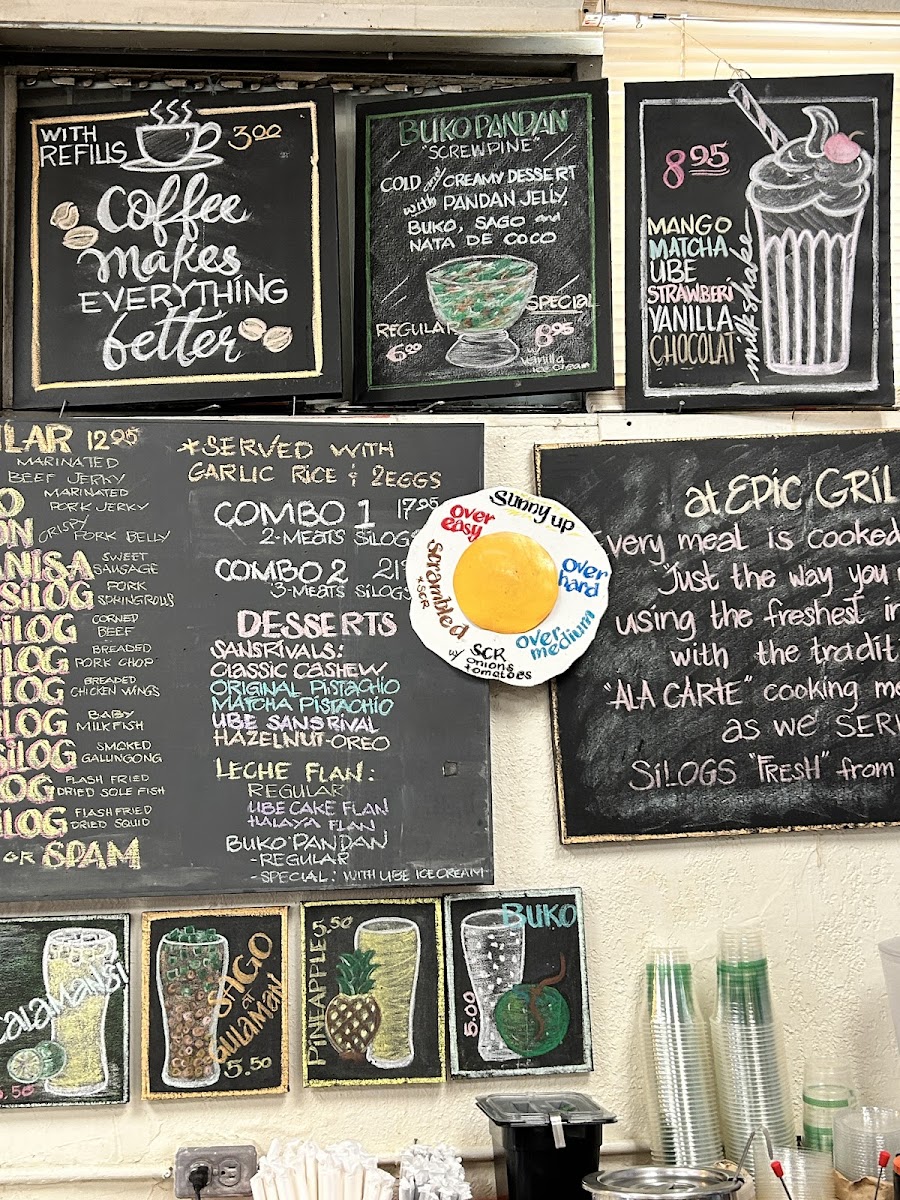 WITH
REFILLS
3.00
Coffee
makes
EVERYTHING
better
BUKO PANDAN
"SCREWPINE"
COLD and CREAMY DESSERT
with PANDAN JELLY,
BUKO, SAGO and
NATA DE COCO
REGULAR
6.00
SPECIAL
8.95
vanilla
ice cream
8.95
MANGO
MATCHA
UBE
STRAWBERI
VANILLA
CHOCOLAT
milkshake
LAR 12.95
MARINATED
BEEF JERKY
MARINATED
PORK JERKY
CRISPY
PORK BELLY
ANISA SWEET
SAUSAGE
SILOG PORK
SPRINGROLLS
SILOG CORNED
BEEF
LOG BREADED
PORK CHOP
LOG BREADED
CHICKEN WINGS
LOG BABY
MILKFISH
SILOG SMOKED
GALUNGONG
OG FLASH FRIED
DRIED SOLE FISH
LOG FLASH FRIED
DRIED SQUID
OR SPAM
*SERVED WITH
GARLIC RICE & 2EGGS
COMBO 1 17.95
2-MEATS SILOGS
COMBO 2 21
3-MEATS SILOGS
DESSERTS
SANSRIVALS:
CLASSIC CASHEW
ORIGINAL PISTACHIO
MATCHA PISTACHIO
UBE SANSRIVAL
HAZELNUT-OREO
LECHE FLAN:
REGULAR
UBE CAKE FLAN
HALAYA FLAN
BUKO PANDAN
-REGULAR
-SPECIAL: WITH UBE ICE CREAM
Sunny up
Over
easy
Over
hard
Over
medium
Scrambled
*SCR
w/ SCR
onions
tomatoes
at EPIC GRIL
very meal is cooked
"Just the way you
using the freshest in
with the tradit
"ALA CARTE" cooking me
as we SER
SILOGS "FRESH" from
Calamansi
5.50
SAGO
at
GULAMAN
5.50
PINEAPPLE 5.50
BUKO
5.00